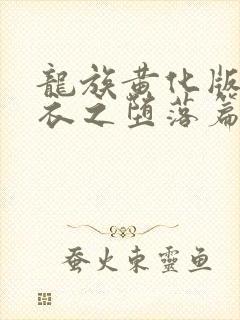 龍族黄化版
衣之堕落篇
蚕火東靈鱼